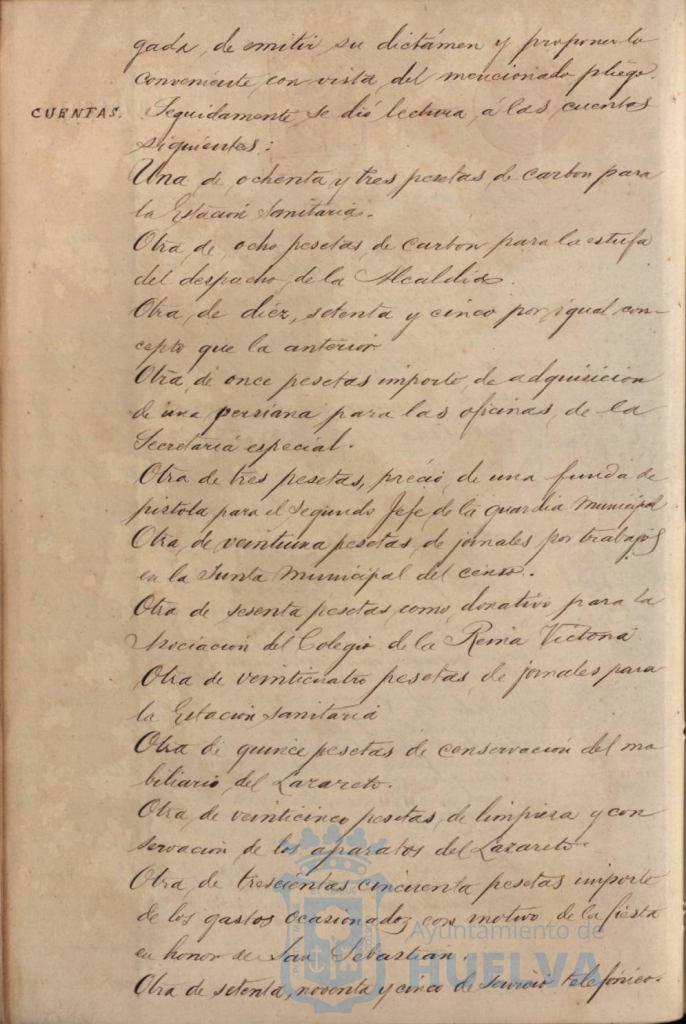 gada, de emitir su dictámen y proponer lo
conveniente con vista del mencionado pliego.
CUENTAS. Seguidamente se dió lectura á las cuentas
siguientes:
Una de ochenta y tres pesetas de carbon para
la Estación Sanitaria.
Otra de ocho pesetas de carbon para la estufa
del despacho de la Alcaldia.
Otra de diez, setenta y cinco por igual con-
cepto que la anterior
Otra de once pesetas importe de adquisicion
de una persiana para las oficinas de la
Secretaría especial.
Otra de tres pesetas, precio de una funda de
pistola para el segundo Jefe de la guardia municipal
Otra de veintiuna pesetas de jornales por trabajos
en la Junta municipal del censo.
Otra de sesenta pesetas como donativo para la
Asociación del Colegio de la Reina Victoria
Otra de veinticuatro pesetas de jornales para
la Estación sanitaria
Otra de quince pesetas de conservación del mo
biliario del Lazareto.
Otra de veinticinco pesetas de limpieza y con
servacion de los aparatos del Lazareto.
Otra de trescientas cincuenta pesetas importe
de los gastos ocasionados con motivo de la fiesta
en honor de San Sebastian.
Otra de setenta, noventa y cinco de servicio telefónico.
Ayuntamiento de
HUELVA